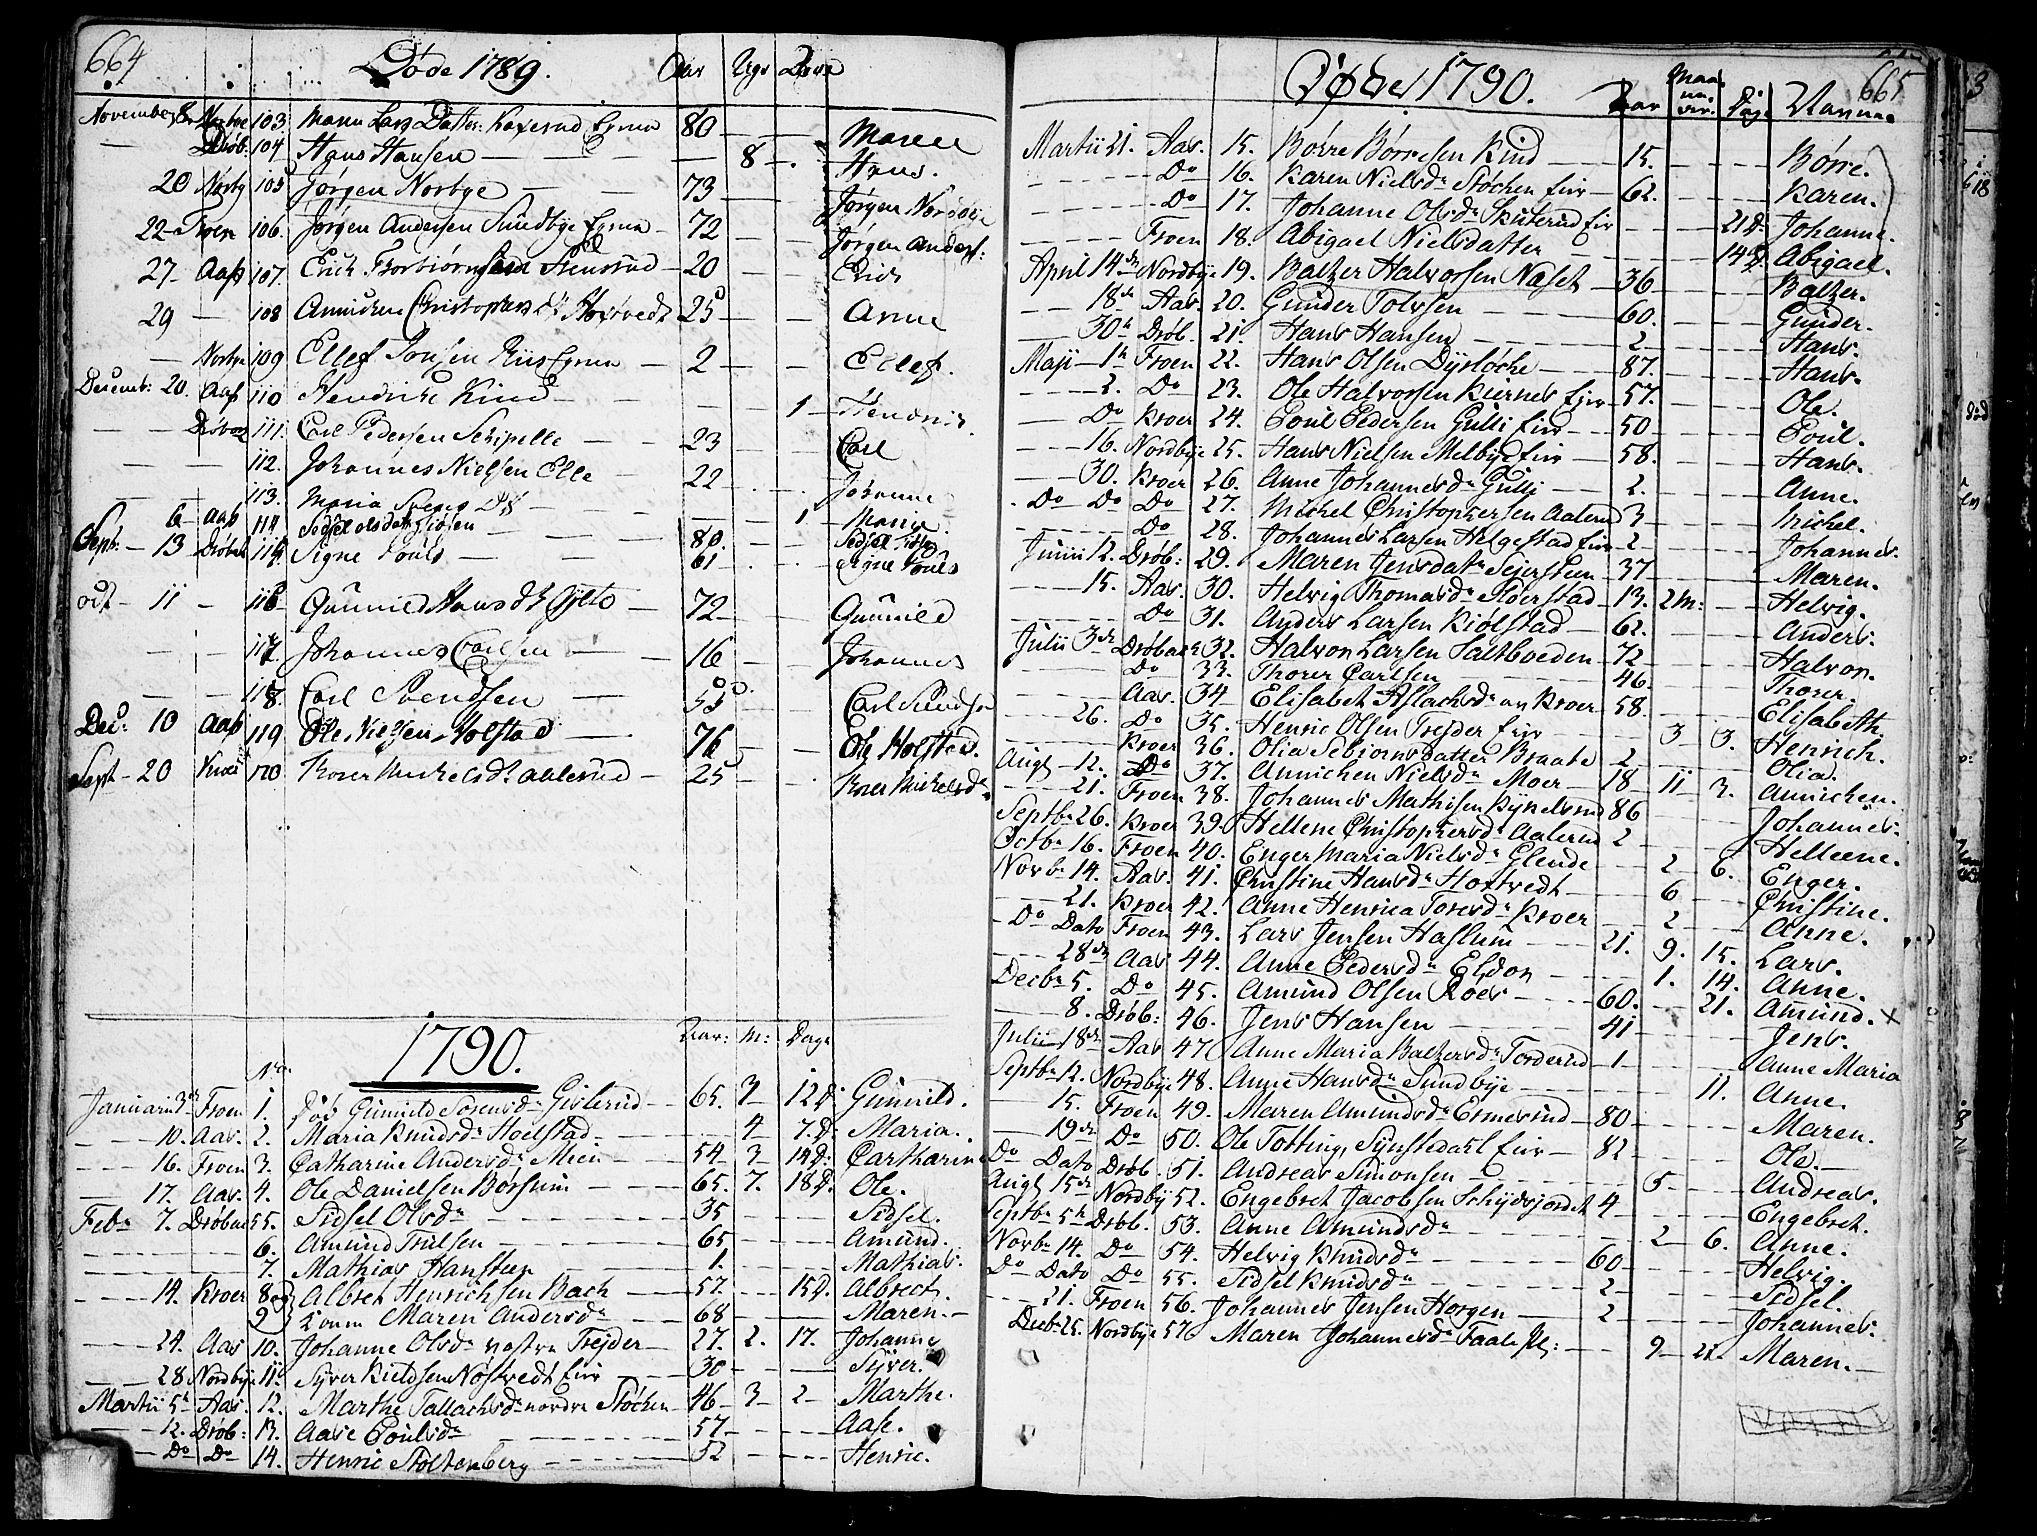 664
Døde 1789. Aar Ugr Dage
November 8 Norbye 103 Maren Lars Datter: Eyrn 80 - - Maren
- Drøb: 104 Hans Hansen - - 8 - Hans.
20 Norby 105 Jørgen Norbye - 73 - - Jørgen Norbye
22 Froen 106. Jørgen Andersen Sundbye - 72 - - Jørgen Anders:
27 - Aass 107. Erich Torbiørnsen Stensrud - 20 - - Erich
29 - 108 Annichen Christophers Dr 25 - - Anne
- Norbye 109 Ellef Jonsen Riis - 2 - - Ellef.
Decemb: 20. Aass 110 Hendriche Kind - - - 1 - Hendrich
- Drøvac 111. Carl Pedersen Schipelle - 23 - - Carl
- - 112. Johannes Nielsen Elle - 22 - - Johanne
- - 113. Maria Svens Dr - - - 1 - Maria
6 - Aas 114. Sidsel olsdatr - 80. - - Sidsel
Sept. - 13 Drøbach 115 Signe Pouls - 61 - - Signe Pouls
oct - 11 - 116 Gunnild Hans dr - 72 - - Gunnild
- - 117. Johannes Carlsen - 16 - Johannes
- - 118. Carl Svendsen - 55 - Carl Svendsen
Dec: 10 Aas 119 Ole Nielsen Holstad - 76 - - Ole Holstad.
Sept - 20 Kroer 120 Koren Michelsdr aalerud - 25 - - Koren Michelsdr
1790.
No. Aar: M: Dage
Januarii 3die Froen 1. Gunnild Sørensdr Gislerud - 65. 3 - 12 D: Gunnild.
- 10. Aas. 2. Maria Knudsdr Hoelstad - - 4 - 7. D: Maria.
- 16. Froen 3. Catharine Andersdr Mien - 54 - 3 - 14 D: Cartharine
- 17. Aas. 4. Ole Danielsen Borsum - 65. 7. 18 D: Ole.
Febr 7. Drøbac 5. Sidsel Olsdr - 35 - - Sidsel.
- 6. Amund Trulsen - 65 - - Amund.
- 7. Mathias Hansteen - 1. - - Mathias.
- 14. Kroer 8 og Albret Henrichsen Bach - 57. - 15 D. Albrect.
9 Konen Maren Andersdr - 68 - - Maren.
- 24. Aas 10. Johanne Olsdr vestre Trejder - 27. 2. 17. Johanne
- 28 Nordbye 11. Syver Knudsen Nøstvedt Eier - 30 - - Syver.
Martii 5te Aas. 12. Marthe Tallachsdr nordre Støchen - 46 - 3 - 2 - Marthe.
- 12. Drøb: 13. Aase Poulsdr - 57. - - Aase.
- Do Do 14. Henric Stoltenberg - 52 - - Henric.
665
Døde 1790. Aar Maaneder. Dage Navne
Martii 21. Aas. 15. Børre Børresen Kind - 15. - - Børre.
- Do 16. Karen Nielsdr Støchen Eier - 62. - - Karen.
- Do 17. Johanne Olsdr Skuterud Eier - - 21 D. Johanne.
- Froen 18. Abigael Nielsdatter - - 14 D. Abigael.
April 14de Nordbye 19. Baltzer Halvorsen Naset - 36 - - Baltzer.
- 18de Aas. 20. Gunder Tolvsen - 60. - - Gunder.
- 30te Drøb. 21. Hans Hansen - 2 - - Hans.
Maji - 1te Froen 22. Hans Olsen Dysløche - 87. - - Hans.
- 2. Do 23. Ole Halvorsen Kiernes Eier - 57. - - Ole.
- Do Kroer 24. Poul Pedersen Gulli Eier - 50 - - Poul.
- 16. Nordbye 25. Hans Nielsen Melbye Eier - 58. - - Hans.
- 30. Kroer 26. Anne Johannesdr Gulli - 2. - - Anne.
- Do - Do Do 27. Michel Christophersen Aalerud 3 - - Michel.
- Do 28. Johannes Larsen Helgestad Eier 2 - - Johannes.
Junii 12. Drøb: 29. Maren Jensdatr Sejersteen - 37 - - Maren.
- 15. Aas. 30. Helvig Thomasdr Sloerstad - 13. 2 M: - Helvig.
- Do 31. Anders Larsen Kiølstad - 62. - - Anders.
Julii 3de Drøbac 32. Halvon Larsen Saltboeden - 72 - - Halvon.
- Do 33. Thorer Carlsen - 46. - - Thorer.
- Aas. 34 Elisabet Aslachsdr Kroer 58. - - Elisabeth.
- 26. Do 35. Henric Olsen Trejder Eier - - 3 - 3. Henrich.
- Kroer 36. Olia Sebiørnsdatter Braate 2 - - Olia.
Augt - 12. Do 37. Annichen Nielsdr Moer - 18 - 11 - 3. Annichen.
- 21. Froen 38. Johannes Mathisen Kynelsrud 86 - - Johannes.
Septbr 26. Kroer 39. Hellene Christophersdr Aalerud 2 - - Helleene.
Octbr 16. Froen 40. Enger Maria Nielsdr Glende - - 2 - 6. Enger.
Novbr 14. Aas. 41. Christine Hansdr Hoxtvedt - - 6 - Christine.
- 21. Kroer 42. Anne Henrica Toresdr Kroer - - 2 - Anne.
- Do Dato Froen 43. Lars Jensen Haslum - 21. 9. 15. Lars.
- 28de Aas 44. Anne Pedersdr Eldor - - 1. 14. Anne.
Decbr 5. Do 45. Amund Olsen Røes - 60. - 21. Amund. x
- 8. Drøb: 46. Jens Hansen - 41 - - Jens.
Julii 18de Aas 47 Anne Maria Baltzersdr Torderud - 1 - - Anne Maria
Septbr 12. Nordbye 48. Anne Hansdr Sundbye - - - 11. Anne.
- 15. Froen 49. Maren Amundsdr Ermesrud - 80 - - Maren.
- 19de Do 50. Ole Totting, Eier - 82 - - Ole. -
Do Dato Drøb. 51. Andreas Simonsen - - 5 - - Andreas.
Augt 15de Nordbye 52. Engebret Jacobsen Schydsjordet 4 - - Engebret.
Septbr 5te Drøb. 53. Anne Amundsdr - - 2 - 6. Anne.
Novbr 14. Do 54. Helvig Knudsdr - 60 - - Helvig.
Do Dato Do 55. Sidsel Knudsdr - 2 - - Sidsel.
- 21. Froen 56. Johannes Jensen Horgen - 2 - - Johannes.
Decbr 25. Nordbye 57. Maren Johannesdr Faale Pl: - - 9 - 21. Maren. -